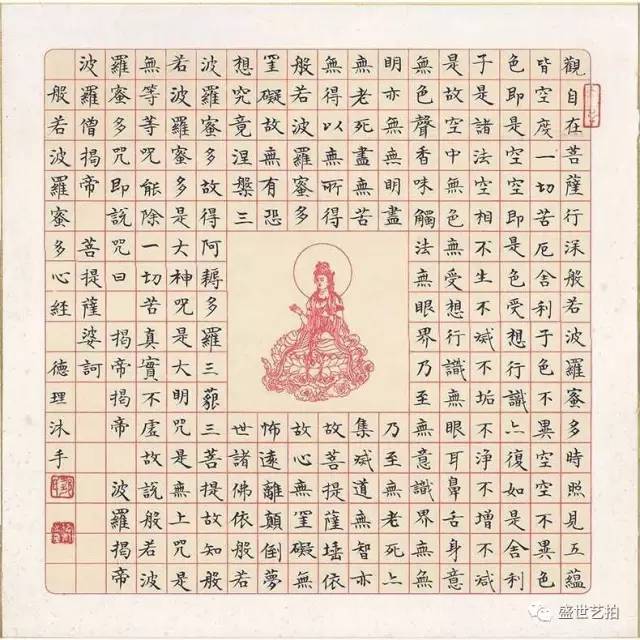 觀自在菩薩行深般若波羅蜜多時照見五蘊
皆空度一切苦厄舍利子色不異空空不異色
色即是空空即是色受想行識亦復如是舍利
子是諸法空相不生不滅不垢不淨不增不減
是故空中無色無受想行識無眼耳鼻舌身意
無色聲香味觸法無眼界乃至無意識界無無
明亦無無明盡乃至無老死亦
無老死盡無苦集滅道無智亦
無得以無所得故菩提薩埵依
般若波羅蜜多故心無罣礙無
罣礙故無有恐怖遠離顛倒夢
想究竟涅槃三世諸佛依般若
波羅蜜多故得阿耨多羅三藐三菩提故知般
若波羅蜜多是大神咒是大明咒是無上咒是
無等等咒能除一切苦真實不虛故說般若波
羅蜜多咒即說咒曰 揭帝揭帝 波羅揭帝
波羅僧揭帝 菩提薩婆訶
般若波羅蜜多心經 德理沐手
盛世艺拍